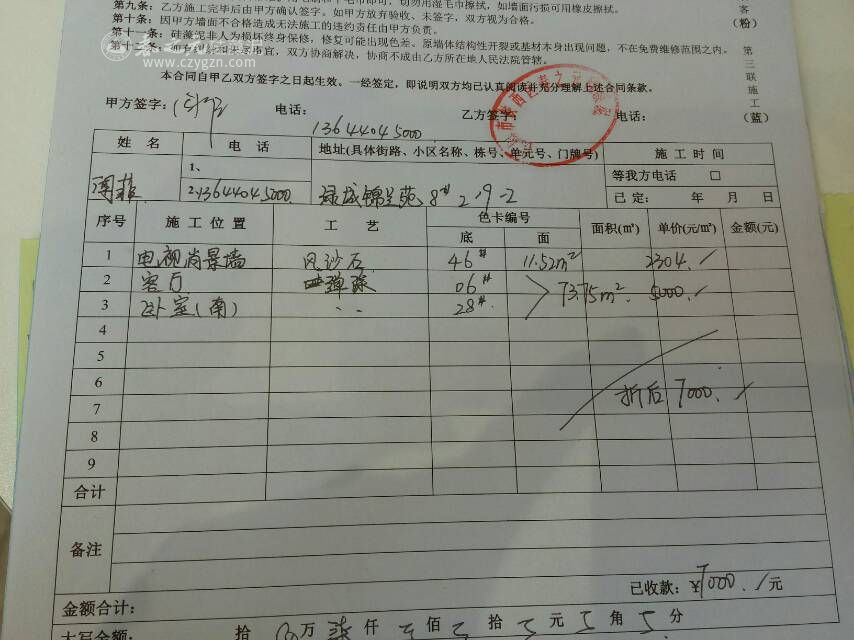 第九条：乙方施工完毕后由甲方确认签字。如甲方放弃验收、未签字，双方视为合格。
第十条：因甲方墙面不合格造成无法施工的违约责任由甲方负责。
第十一条：硅藻泥非人为损坏终身保修，修复可能出现色差。原墙体结构性开裂或基材本身出现问题，不在免费维修范围之内。
第十二条：双方协商解决，协商不成由乙方所在地人民法院管辖。
www.czygzn.com
客
(粉)
第三联施工
(蓝)
本合同自甲乙双方签字之日起生效。一经签定，即说明双方均已认真阅读并充分理解上述合同条款。
甲方签字： 电话：13644045000 乙方签字： 电话：
姓 名 电 话 地址(具体街路、小区名称、栋号、单元号、门牌号) 施 工 时 间
1、 等我方电话 □
2、13644045000 绿城锦兰苑 8# 2-9-2 已定： 年 月 日
序号 施 工 位 置 工 艺 色卡编号 面积(㎡) 单价(元/㎡) 金额(元)
底 面
1 电视背景墙 风沙石 46# 11.52m² 2304.
2 客厅 06# 73.75m² 5000.
3 卧室(南) 28#
4
5
6
折后 7000.
7
8
9
合计
备注
已收款：¥7000. 元
金额合计：
大写金额： 拾 万 柒 仟 佰 拾 元 角 分